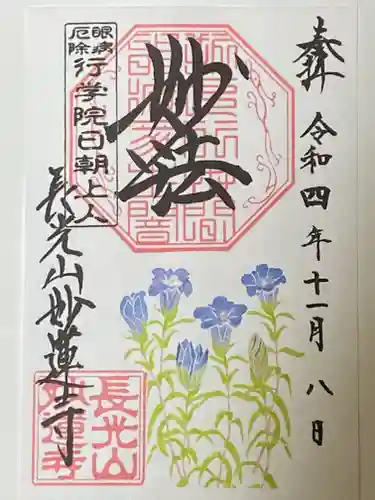 奉拝
令和四年十一月八日
妙法
眼病
厄除
行学院日朝上人
長光山妙蓮寺
長光山
妙蓮寺